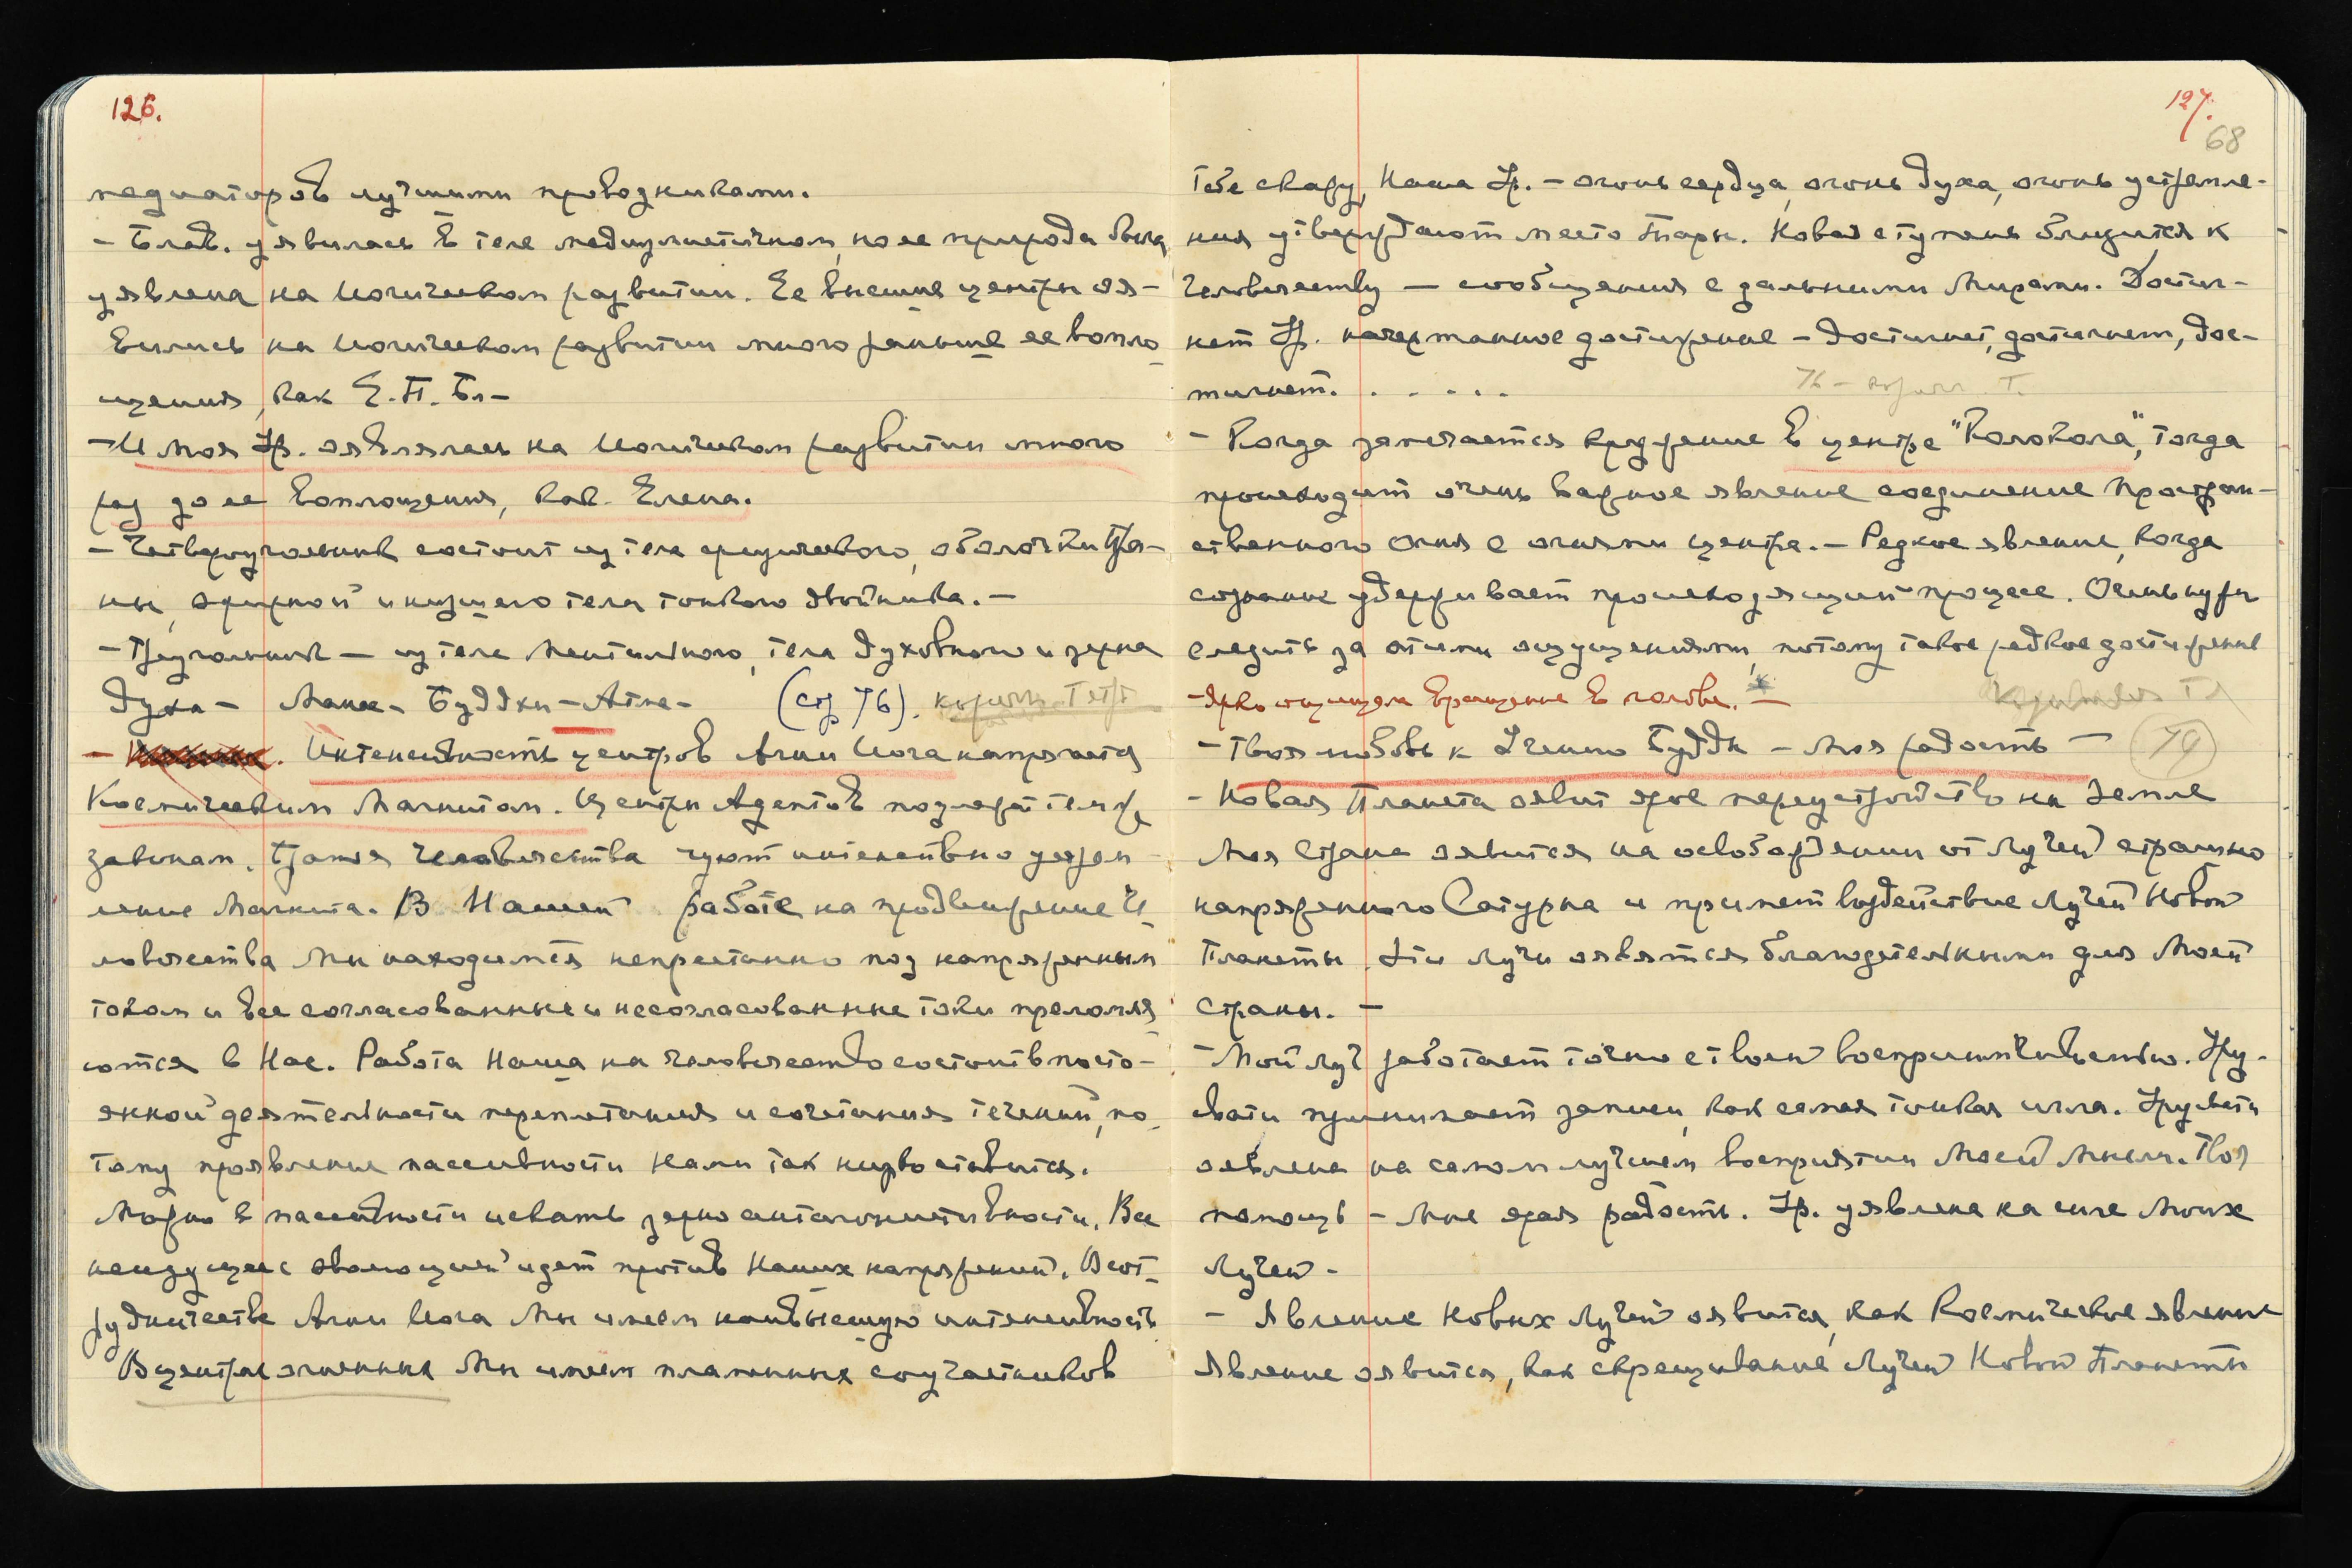 126.
медиаторов лучшими проводниками.
- Блав. уявилась в теле медиумистичном, но ее природа была
уявлена на йогическом развитии. Ее высшие центры оя-
вились на йогическом развитии много раньше ее вопло-
щения, как Е.П. Бл-
- И моя Ур. оявлялась на йогическом развитии много
раз до ее воплощения, как Елена.
- Четвероугольник состоит из тела физического, оболочки Пра-
ны, эфирной и низшего тела тонкого двойника. -
- Треугольник - из тела ментального, тела духовного и зерна
духа - Манас - Буддхи - Атма - (стр 76).
- Интенсивность центров Агни Йога напрягается
Космическим Магнитом. Центры Адептов подлежат тем же
законам. Тратя человечества чуют интенсивно устрем-
ление Магнита. В Нашей работе на продвижение че-
ловечества Мы находимся непрестанно под напряженным
током и все согласованные и несогласованные токи преломля-
ются в Нас. Работа Наша на человечество состоит в посто-
янной деятельности переплетания и сочетания течений, по-
тому проявление пассивности Нами так низко ставится.
Можно в пассивности искать зерно антагонистивности. Все
неидущее с эволюцией идет против Наших напряжений. В сот-
рудничестве Агни Йога Мы имеем наивысшую интенсивность
В центрах огненных Мы имеем пламенных соучастников
127.
68
Тебе скажу, Наша Ур. - огонь сердца, огонь духа, огонь устремле-
ния утверждают место Тары. Новая ступень близится к
человечеству - сообщения с дальними Мирами. Достиг-
нет Ур. начертанное достижение - достигнет, достигнет, дос-
тигнет. . . . . .
- Когда замечается кружение в центре "Колокола", тогда
происходит очень важное явление соединение Простран-
ственного Огня с огнями центра. - Редкое явление, когда
сознание удерживает происходящий процесс. Очень нужно
следить за этими ощущениями, потому такое редкое достижение
- Ярко ощущала вращение в голове. -
- Твоя любовь к Учению Будды - Моя радость - 79
- Новая Планета оявит ярое переустройство на Земле
Моя Страна оявится на освобождении от Лучей страшно
напряженного Сатурна и примет воздействие Лучей Новой
Планеты. Эти Лучи оявятся благодетельными для Моей
страны. -
- Мой Луч работает точно с твоей восприимчивостью. Уру-
свати принимает записи, как самая тонкая игла. Урусвати
оявлена на самом лучшем восприятии Моей Мысли. Твоя
помощь - Мне ярая радость. Ур. уявлена на силе Моих
Лучей -
- Явление Новых Лучей оявится, как Космическое явление
Явление оявится, как скрещивание Лучей Новой Планеты